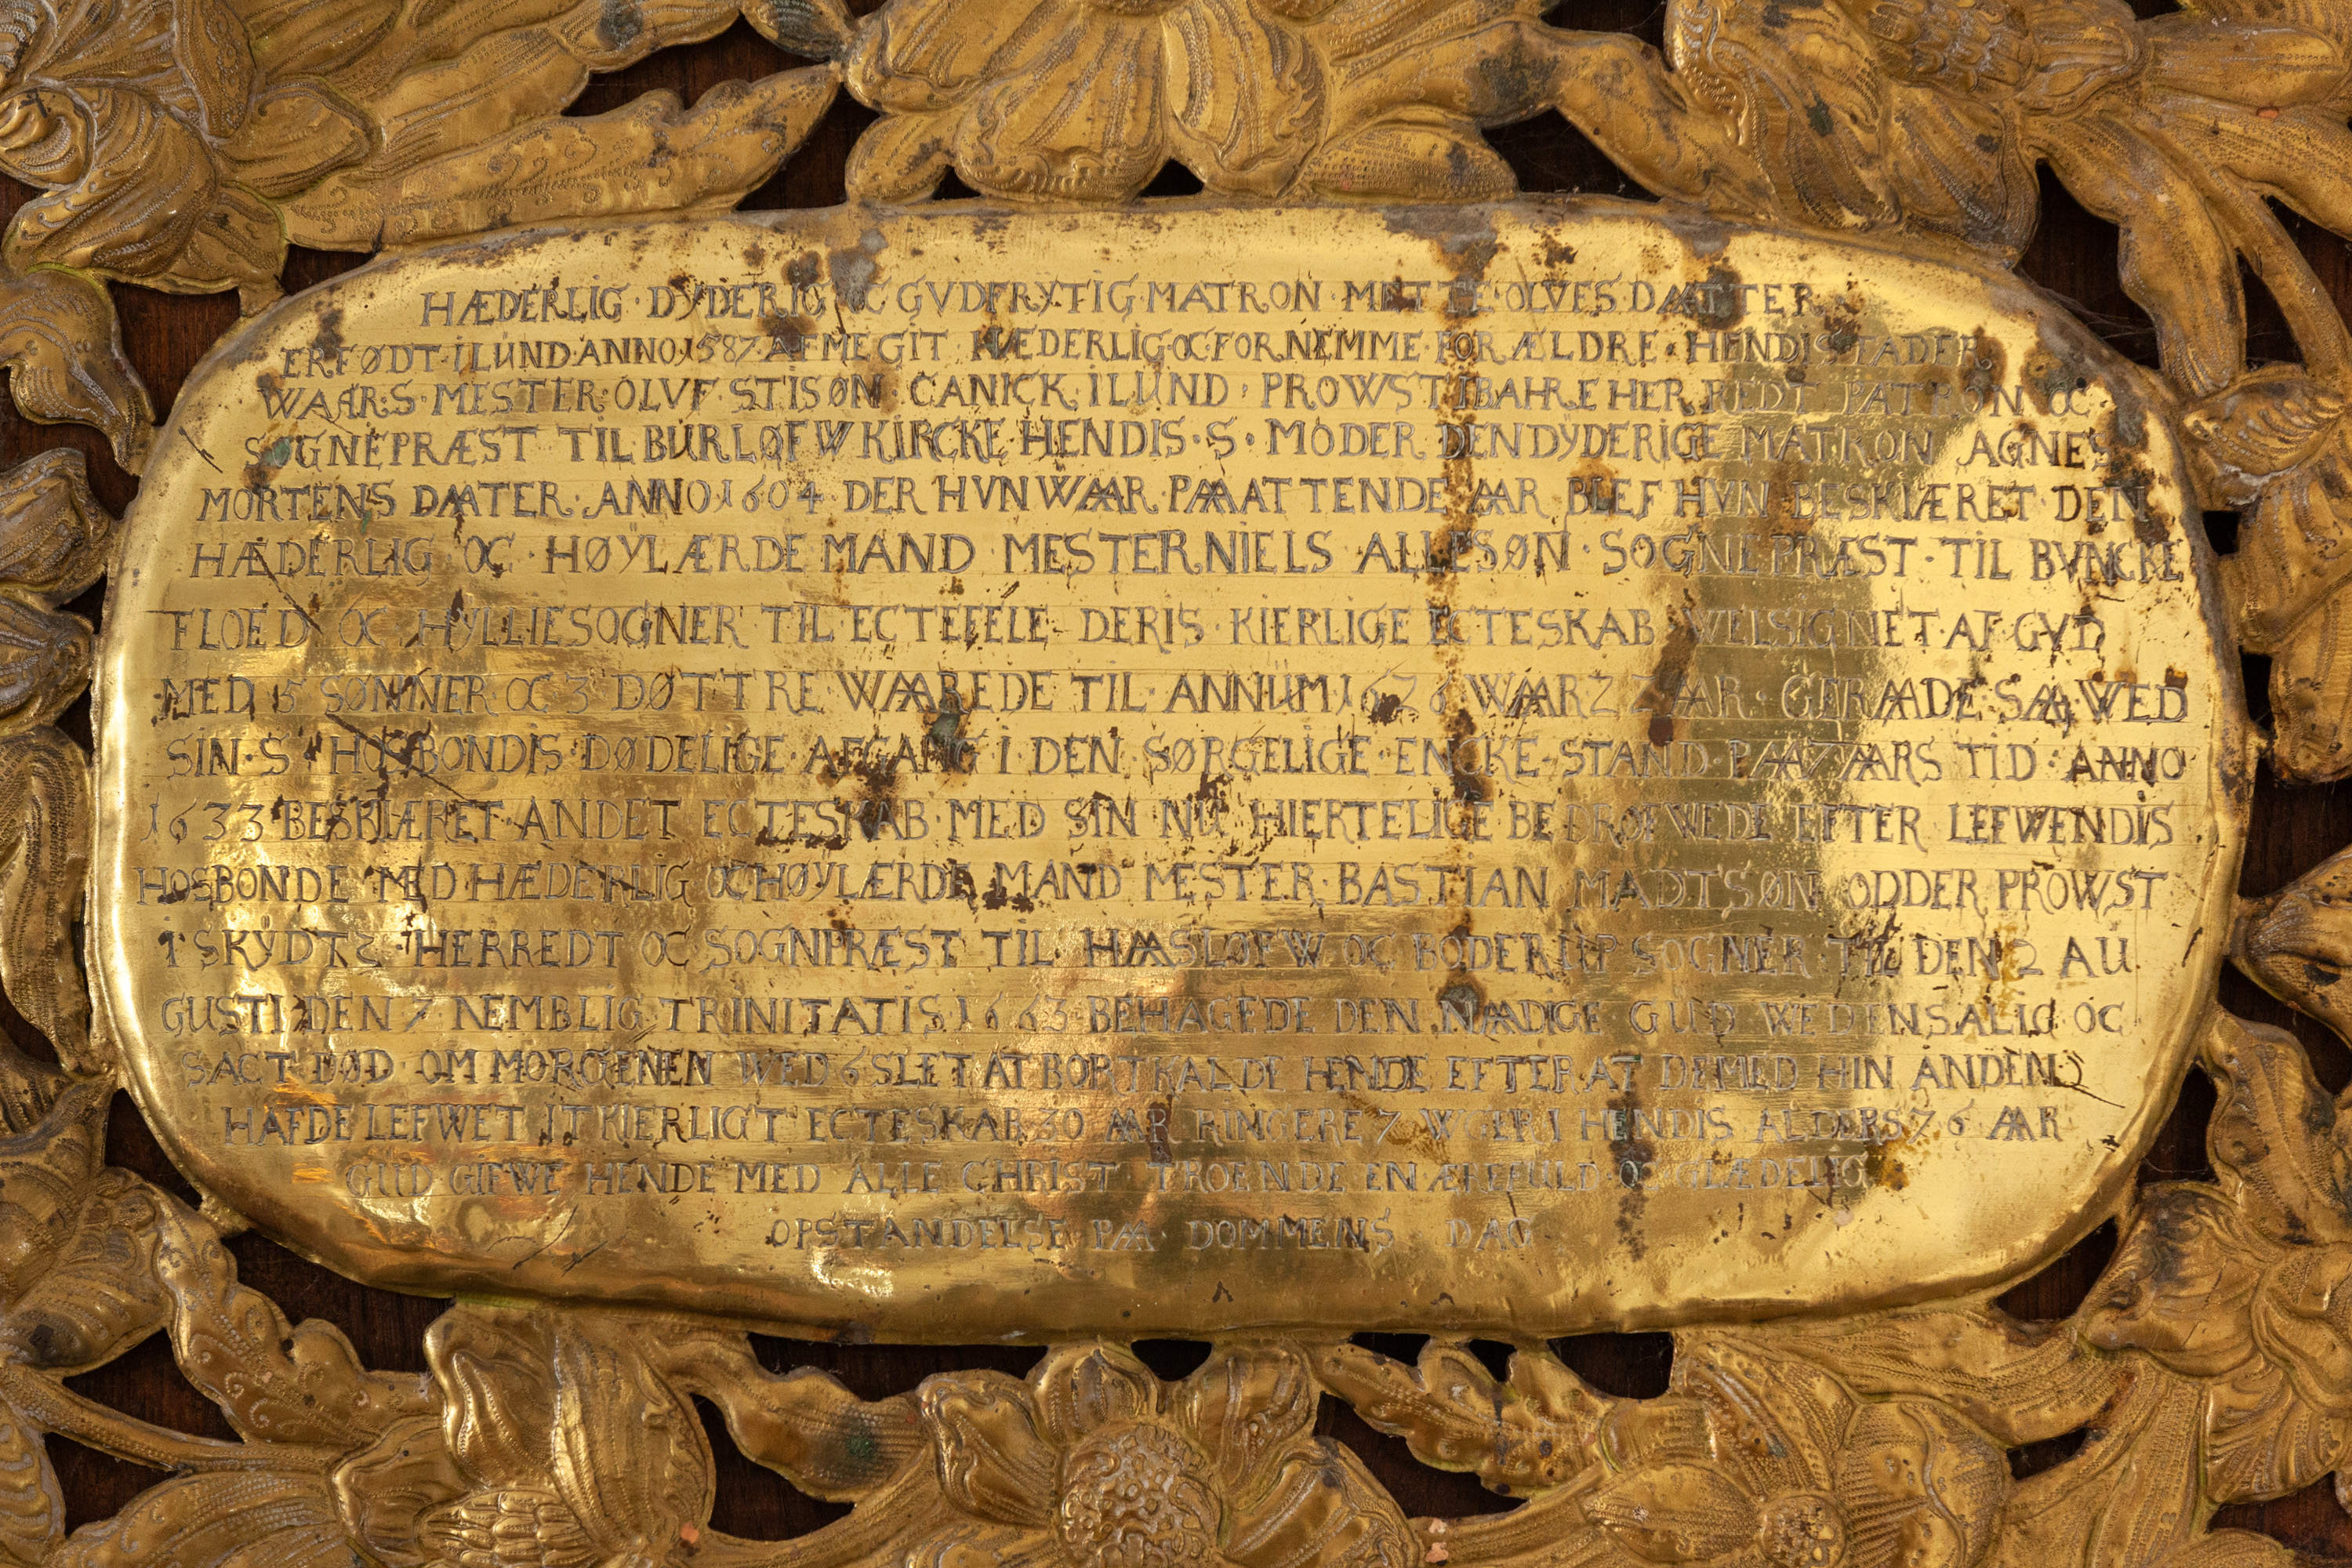 HÆDERLIG · DYDERIG OC GVDFRYTIG · MATRON · METTE · OLVFS DAATTER
ER FØDT · I LUND · ANNO · 1587 · AF MEGIT HÆDERLIG · OC FORNEMME FORÆLDRE · HENDIS FADER
WAAR · S · MESTER · OLVF · STISØN · CANICK I LUND · PROWST I BAHRE HERREDT PATRON OC
SOGNEPRÆST TIL BURLØFW KIRCKE HENDIS · S · MODER DEN DYDERIGE MATRON AGNES
MORTENS DAATER · ANNO 1604 DER HVN WAAR · PAA ATTENDE AAR BLEF HVN BESKIÆRET DEN
HÆDERLIG OC · HØYLÆRDE MAND · MESTER NIELS ALLESØN · SOGNEPRÆST · TIL BVNCKE
FLOED OC HYLLIE SOGNER TIL ECTEFELE DERIS · KIERLIGE ECTESKAB WELSIGNET · AF GVD
MED 5 SØNNER OC 3 DØTTRE · WAAREDE TIL · ANNUM 1626 WAAR 22 AAR · GERAADE · SAA WED
SIN · S · HOSBONDIS DØDELIGE · AFGANG I · DEN SØRGELIGE · ENCKE-STAND · PAA 7 AARS TID · ANNO
1633 BESKIÆRET ANDET ECTESKAB · MED SIN NU HIERTELIGE BEDROFWEDE EFTER LEFWENDIS
HOSBONDE MED HÆDERLIG OC HØYLÆRDE MAND MESTER · BASTIAN MADTSØN ODDER PROWST
I SKYDTZ HERREDT OC SOGNPRÆST TIL HAASLØFW OC BODERUP SOGNER TIL DEN 2 AU
GUSTI DEN 7 NEMBLIG TRINITATIS 1663 BEHAGEDE DEN NAADIGE GUD WED EN SALIG OC
SACT DØD OM MORGENEN WED 6 SLET AT BORTKALDE HENDE EFTER AT DE MED HIN ANDEN
HAFDE LEFWET IT KIERLIGT ECTESKAB 30 AAR RINGERE 7 WGER I HENDIS ALDERS 76 AAR
GUD GIFWE HENDE MED ALLE CHRIST TROENDE EN ÆREFULD OC GLÆDELIG
OPSTANDELSE PAA DOMMENS DAG